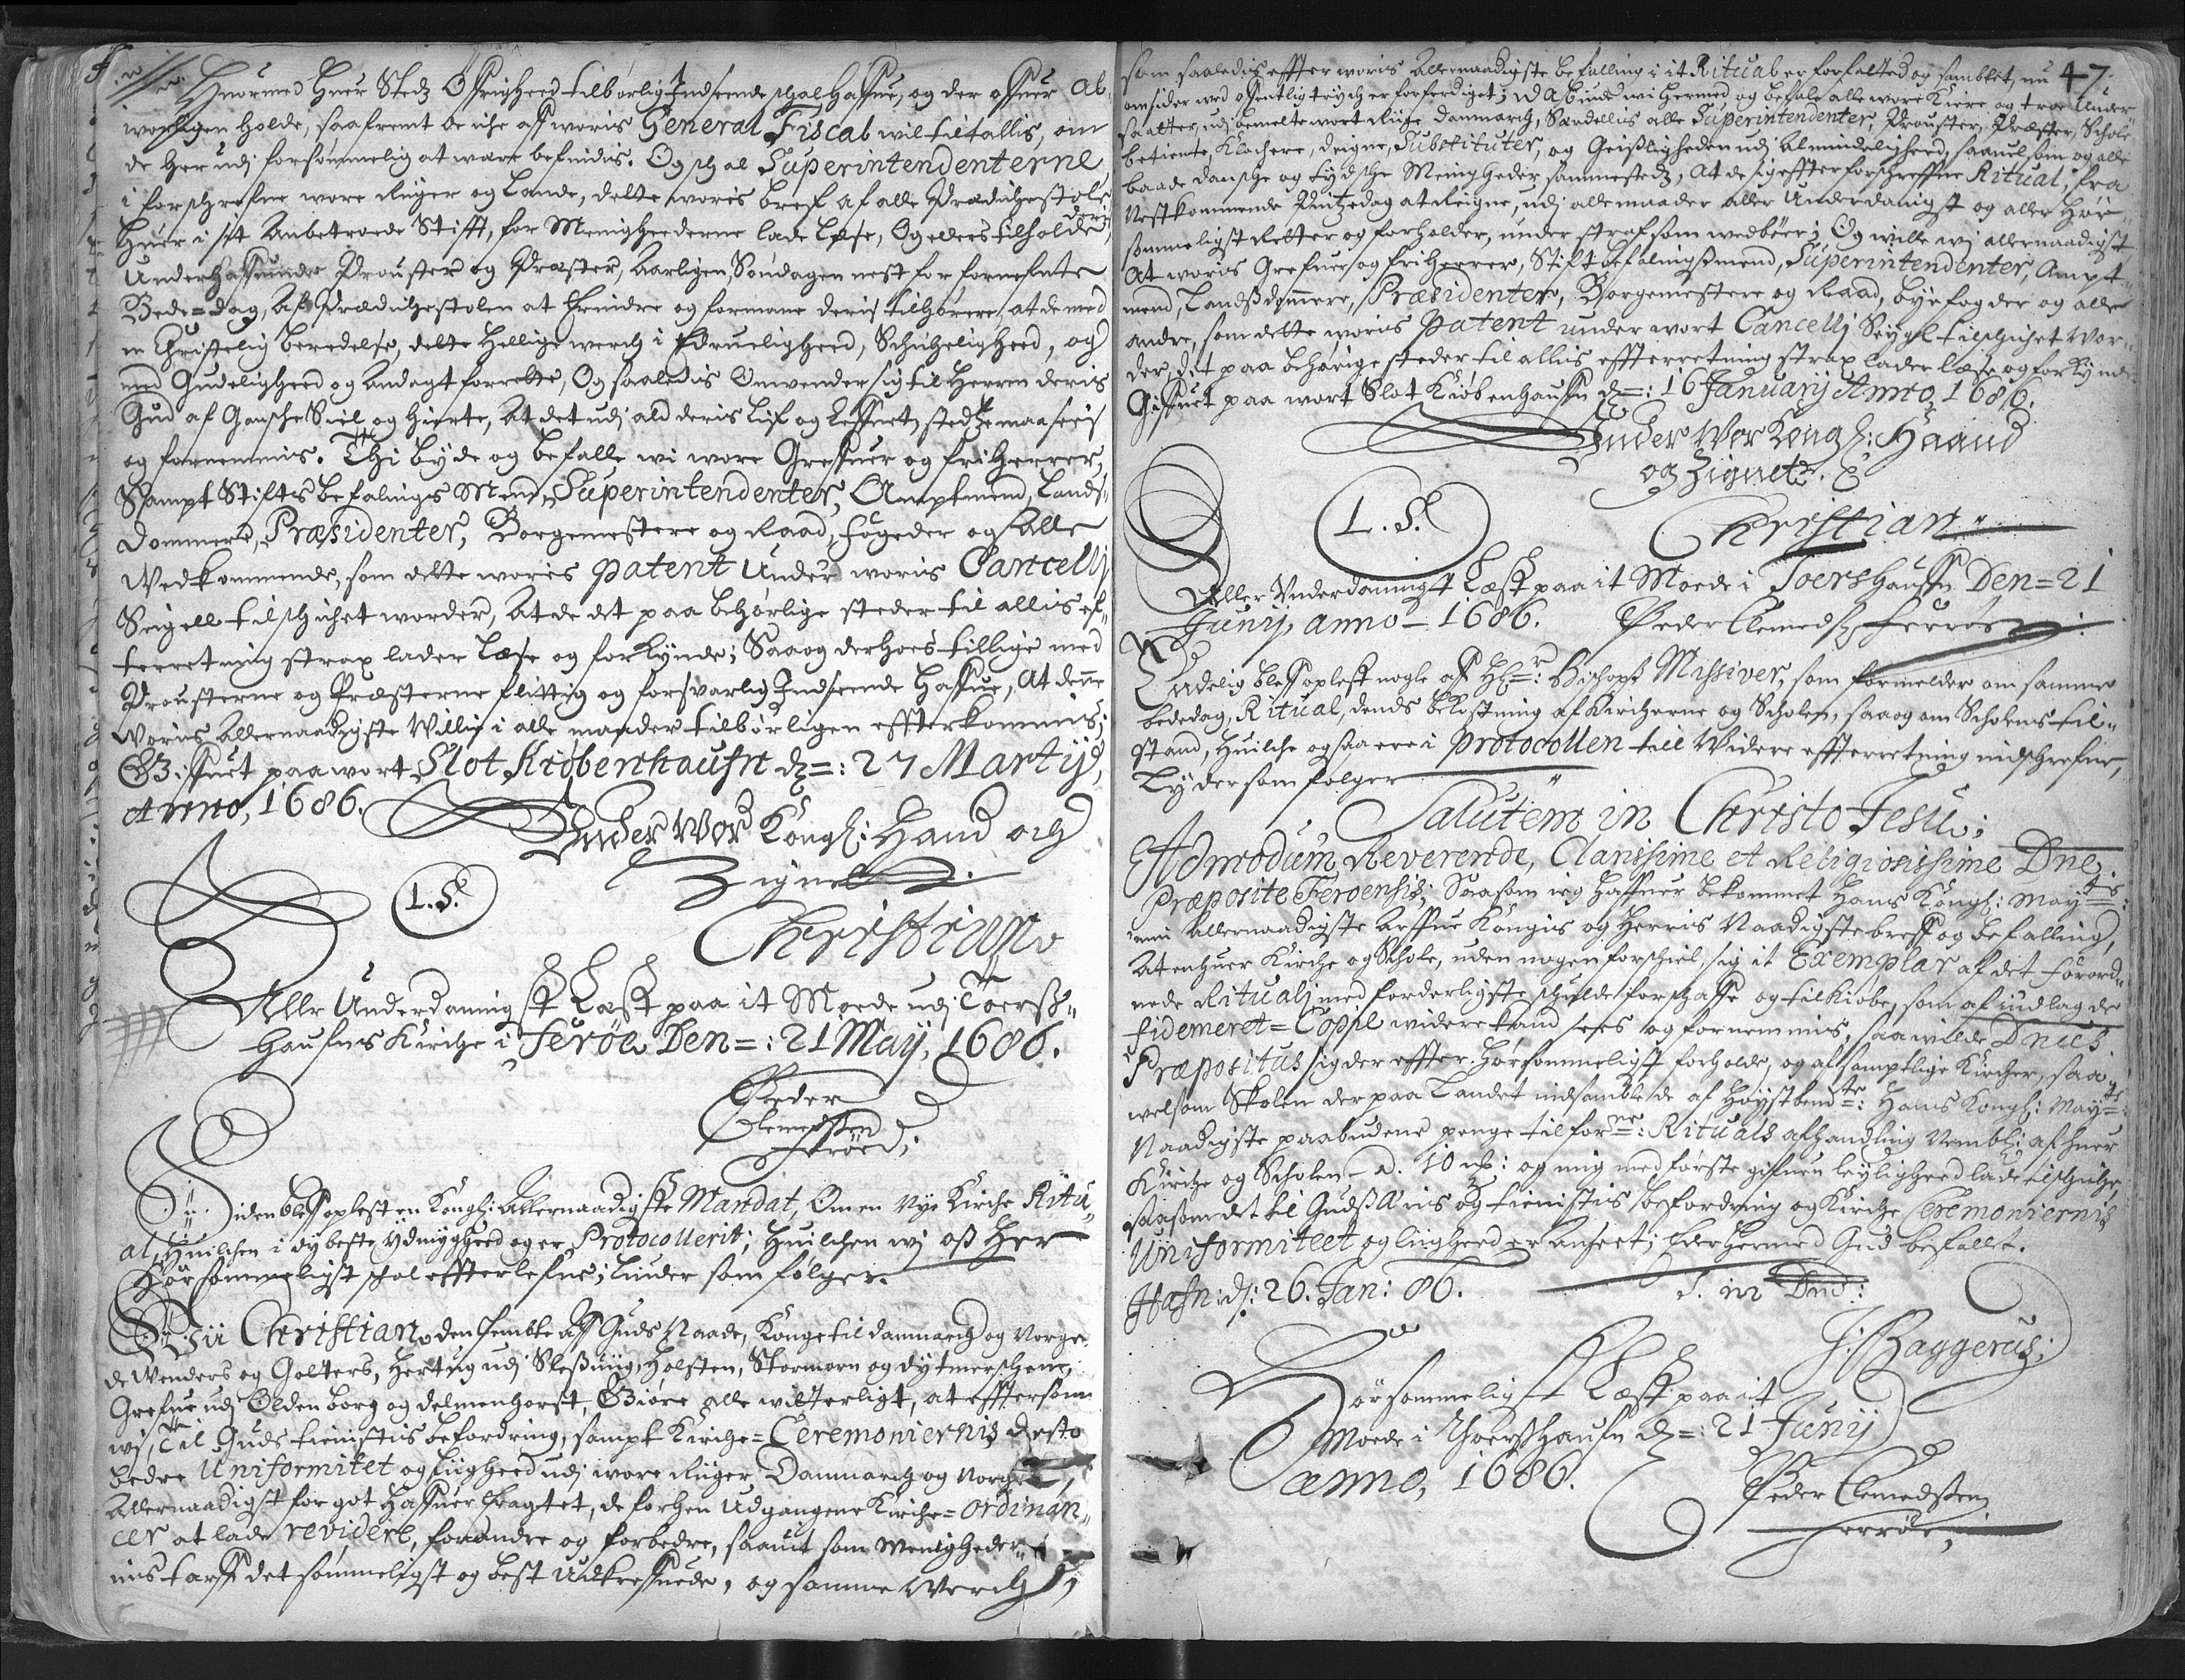 Huormed Huer Stedz Öffrigheed tilbørlig Indseende schal haffue, og der offuer al„
worligen holde, saafremt de iche aff woris General Fiscal wil tiltallis, om
de her udj forsømmelig at ware befindis. Og schal Superintendenterne
i forschrefne wore Riiger og Lande, dette woris bref af alle Prædichestole
huer i sit Anbetroede Stifft, for Menighederne lade læse, Og ellers tilholde deris
Underhaffuende Prouster og Præster, Aarligen, Søndagen nest for fornefnte
Bede=dag, Af Prædichestolen at Erindre og formane deris tilhørere, at de med
en Christelig beredelse, dette Hellige werch i Ædrueligheed, Schicheligheed, og
med Gudeligheed og Andagt forrette, Og saaledis Omvender sig til Herren deris
Gud af Gansche Siel og hierte, At det udj ald deris Lif og Leffnet, stedtze maa seeis
og fornemmis. Thi byde og befalle wi wore Greffuer og friherrer,
Sampt Stiftsbefalings Mend, Superintendenter, Amptmend, Lands„
dommere, Præsidenter, Borgemestere og Raad, fogeder og alle
Wedkommende, som dette woris patent Under woris Cancellj
Seigell tilschichet worder, At de det paa behørlige steder til allis ef„
terretning strax lader Læse og forkynde; Saa og derhoes tillige med
Prousterne og Præsterne flittig og forsvarlig Indseende haffue, At denne
woris Allernaadigste Willie i alle maader tilbørligen effterkommis;
Giffuet paa wort Slot Kiøbenhaufn d=: 27 Martij,
Anno, 1686.
Under Wor Kongl: Hand och
Zignet.
L.S.
Christian
Aller Underdanigst Læst paa it Moede udj Toersz„
haufns Kirche i Ferøe Den=: 21 Maij, 1686.
Peder
Clemedsen
Ferröe;
Siden bleff oplest en Kongl: Allernaadigste Mandat, Om en Nye Kirche Ritu„
al, Huilchen i dybeste Ydmygheed og er Protocollerit; Huilchen wi oss Her
Hørsommeligst schal effterlefue; Liuder som følger.
Wii Christian den femte aff Guds Naade, Konge til Danmarch og Norge
de Wenders og Gotters, Hertug udj Slesswig, Holsten, Stormarn og Dytmerschen,
Grefue udj Oldenborg og Delmenhorst, Giøre alle witterligt, at efftersom
wj, Til Guds tienistis befordring, sampt Kirche=Ceremoniernis desto
bedre Uniformitet og Liigheed udj wore Riiger Danmarch og Norge,
Allernaadigst for got haffuer Eragtet, de forhen Udgangene Kirche=ordinan„
cer at lade revidere, forandre og forbedre, saauit som Menigheder„
nis tarff det sømmeligst og best Udkreffuede, og samme Werch
47.
som saaledis effter woris Allernaadigste befalling i it Ritual er forfatted og samblet, nu
omsider wed offentlig tryck er forferdiget; Da biude wi hermed og befale alle wore Kiere og troe Under
saatter, udj bemelte wort Riige Danmarch, Særdellis alle Superintendenter, Prouster, Præster, Schole„
betiente, Klochere, deigne, Substituter, og Geistligheden udj Almindeligheed, saauelsom og alle
baade Dansche og tydsche Menigheder sammestedz, At de sig effter forschreffne Ritual, fra
Nestkommende Pintzedag at Reigne, udj alle maader aller Underdanigst og aller hør„
sommeligst Retter og forholder, under straf som wedbør; Og wille wj allernaadigst
At woris Grefuer og friherrer, Stiftbefalingsmend, Superintendenter, Ampt„
mend, Landsdommere, Præsidenter, Borgemestere og Raad, byefogder og alle
andre, som dette woris Patent under wort Cancellj Seygel tilschichet Wor„
der, det paa behørige steder til allis effterretning strax lader læse og forkynde
Giffuet paa wort Slot Kiøbenhauffn d=: 16 Januarij Anno, 1686.
Under Wor Kongl: Haand
og Zignet.
L.S.
Christian
Aller Underdannigst Læst paa it Moede i Toershauffn Den=21
Junij, anno=1686. Peder Clemedsen Ferröe
Endelig bleff oplest nogle aff Hr=: Bischops Missiver, som formelder om samme
bededag, Ritual, dends bekostning af Kircherne og Scholen, saa og om Scholens til„
stand, huilche ogsaa ere i Protocollen till Widere effterretning indschrefne,
Lyder som følger
Salutem in Christo Jesu;
Admodum Reverende, Clarissime et Religiosissime Dne
Præposite Feroensis; Saasom ieg haffuer bekommet Hans Kongl: Mayts:
min allernaadigste Arffue Kongis og Herris Naadigste breff og befalling,
At en huer Kirche og Schole, uden nogen forschiel, sig it Exemplar af det forord„
nede Rituali med forderligste schulde forschaffe og tilkiøbe, som af indlagde
fidemeret=Copie widere kand sees og fornemmis, saa wilde Dnus
Præpositus sig der effter hørsommeligst forholde, og af samptlige Kircher, saa
welsom Skolen der paa Landet indsamble de af Høystbemte: Hans Kongl: Mayts:
Naadigste paabudene penge til forne: Rituals afhandling Nembl: af huer
Kirche og Scholen - a. 10 mk: og mig med første gifuen leyligheed lade tilschiche,
saasom det til Guds Æris og tienistis befordring og Kirche Ceremoniernis
Uniformiteet og liigheed er Anseet; Eder hermed Gud befallet.
Hafn: d: 26. Jan: 86. S. in Dno:
H: Baggerus;
Hørsommeligst Læst paa it
Moede i Thorshaufn d=: 21 Junij
anno, 1686.
Peder Clemedsen
Ferröe;